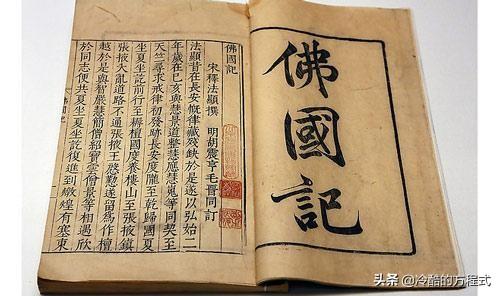 佛國記
佛國記
宋釋法顯撰 明胡震亨毛晉同訂
法顯昔在長安慨律藏殘缺於是遂以弘始二
年歲在已亥與慧景道整慧應慧嵬等同契至
天竺尋求戒律初發跡長安度隴至乾歸國夏
坐夏坐訖前行至耨檀國度養樓山至張掖鎮
張掖大亂道路不通張掖王慇懃遂留爲作檀
越於是與智嚴慧簡僧紹寶雲僧景等相遇欣
於同志便共夏坐夏坐訖復進到燉煌有塞東
头条 @冷酷的方程式